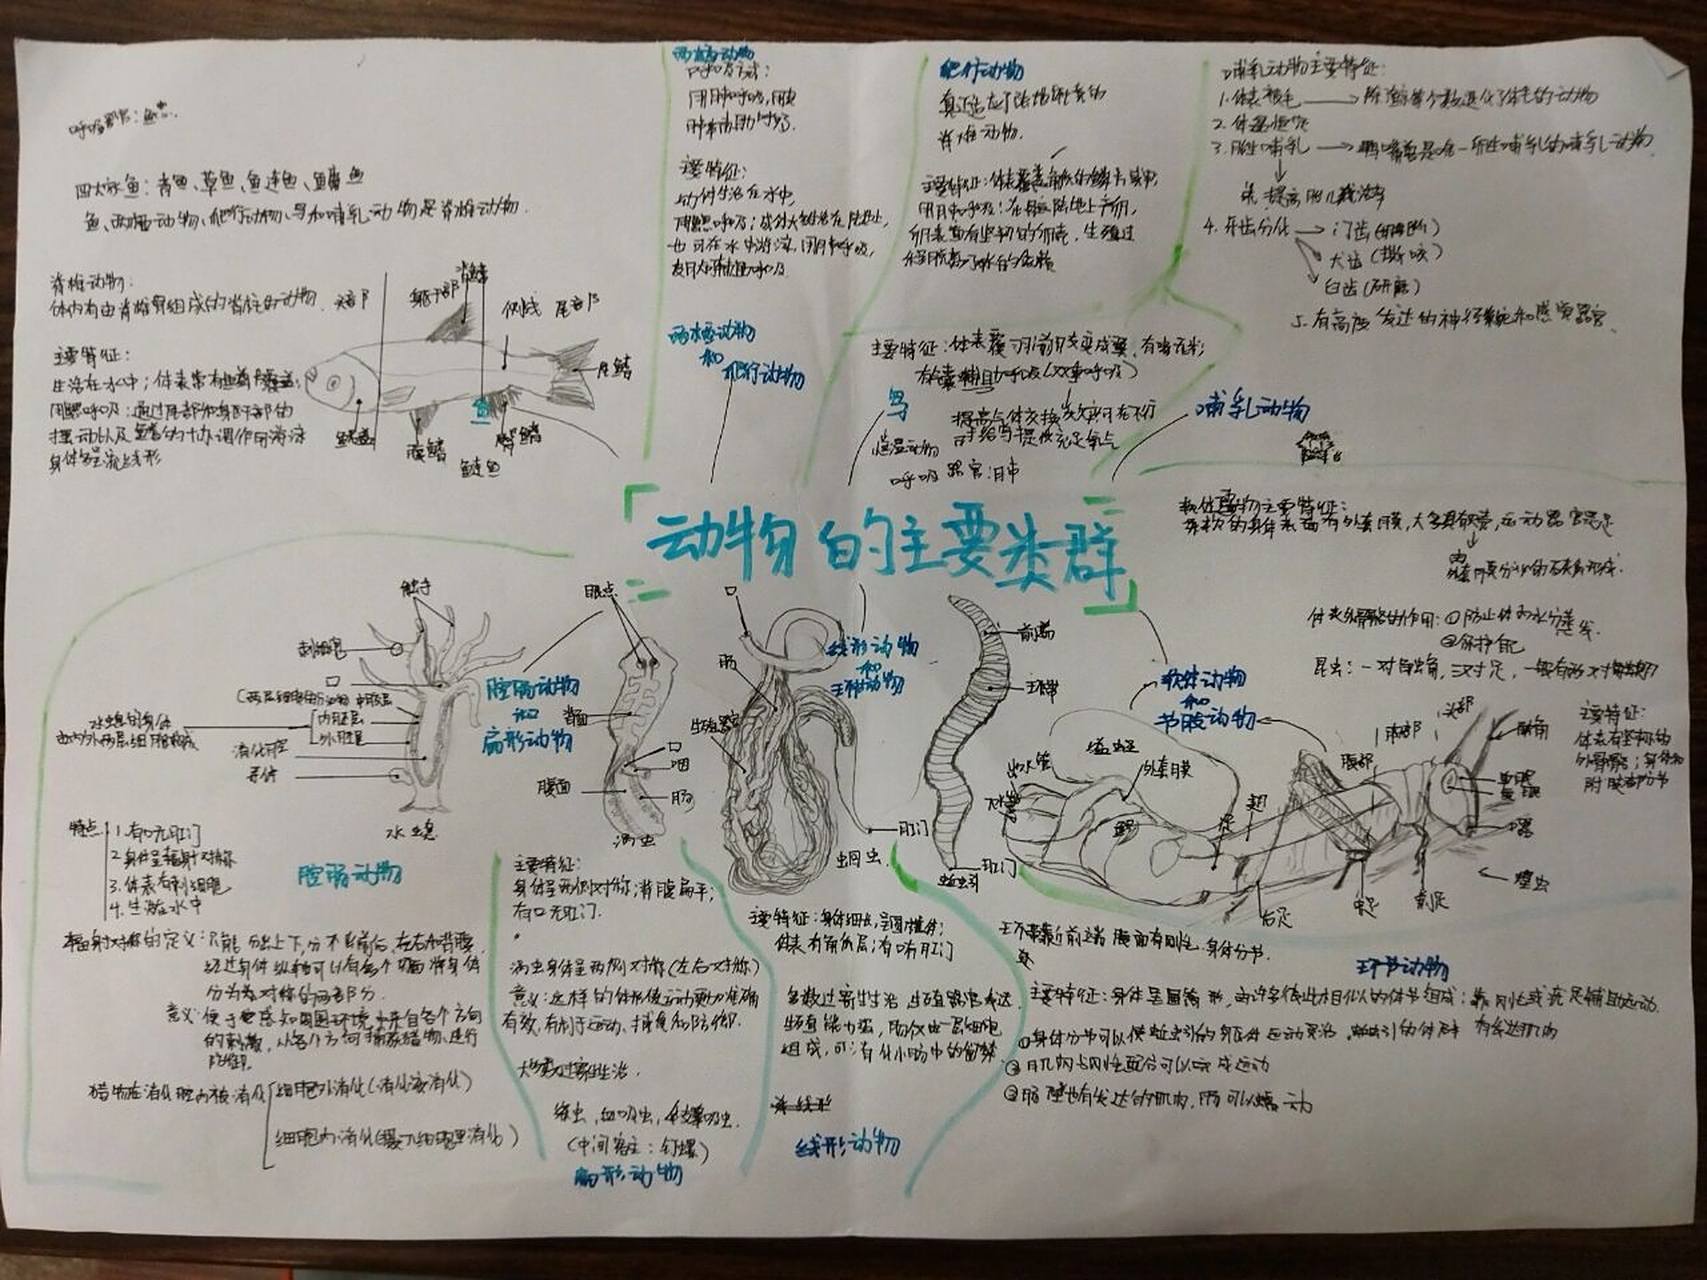 呼吸器官：鱼鳃.
四大家鱼：青鱼、草鱼、鱼连鱼、鳙鱼
鱼、两栖动物、爬行动物、鸟和哺乳动物是脊椎动物.
脊椎动物：
体内有由脊椎骨组成的脊柱的动物.
主要特征：
生活在水中；体表常有鳞片覆盖；
用鳃呼吸；通过尾部和躯干部的
摆动以及鳍的协调作用游泳
身体多呈流线形
头部
躯干部
背鳍
侧线
尾部
尾鳍
鱼
鳃盖
腹鳍
臀鳍
鲢鱼
两栖动物
呼吸方式：
用肺呼吸,用皮
肤辅助呼吸.
主要特征：
幼体生活在水中,
用鳃呼吸；成体大多生活在陆地上,
也可在水中游泳,用肺呼吸,
皮肤辅助呼吸
两栖动物
和
爬行动物
爬行动物
真正适应了陆地环境的
脊椎动物.
主要特征：体表覆盖角质的鳞片或甲；
用肺呼吸；在陆地上产卵,
卵表面有坚韧的卵壳，生殖过
程脱离了水的
主要特征：体表覆羽前肢变成翼,有喙无齿；
有气囊辅助呼吸(双重呼吸)
提高气体交换效率可在飞行
时给鸟提供充足氧气
恒温动物
呼吸器官：肺
鸟
哺乳动物
哺乳动物主要特征：
1.体表被毛
2.体温恒定
3.胎生哺乳
4.牙齿分化
门齿(切断)
犬齿(撕咬)
臼齿(研磨)
5.有高度发达的神经系统和感觉器官.
动物的主要类群
软体动物主要特征：
柔软的身体表面有外套膜,大多具有贝壳,运动器官是足
体表外骨骼的作用：①防止体内水分蒸发.
②保护自己
昆虫：一对触角，三对足，一般有两对翅
主要特征：
体表有坚韧的
外骨骼；身体和
附肢都分节
软体动物
和
节肢动物
线形动物
和
环节动物
腔肠动物
和
扁形动物
触手
刺细胞
口
内胚层
外胚层
消化腔
芽体
水螅
特点
1.有口无肛门
2.身体呈辐射对称
3.体表有刺细胞
4.生活在水中
腔肠动物
眼点
背面
腹面
口
咽
肠
涡虫
口
肠
生殖器官
肛门
蛔虫
前端
环带
肛门
蚯蚓
出水管
外套膜
鳃
足
翅
腹部
胸部
头部
触角
后足
中足
前足
蝗虫
辐射对称的定义：只能分出上下,分不出前后,左右和背腹,
经过身体纵轴可以有多个切面将身体
分为对称的两部分.
意义：便于感知周围环境中来自各个方向
的刺激，从各个方向捕获猎物,进行
防御.
猎物在消化腔内被消化
细胞外消化(消化液消化)
细胞内消化
主要特征：
身体呈两侧对称；背腹扁平；
有口无肛门.
涡虫身体呈两侧对称(左右对称)
意义：这样的体形使运动更加准确
有效,有利于运动、捕食和防御.
大多数过寄生生活.
绦虫,血吸虫,华枝睾吸虫.
(中间宿主：钉螺)
扁形动物
主要特征：身体细长,呈圆柱体；
体表有角质层；有口有肛门
多数过寄生生活 生殖器官发达
生殖能力强,肠仅由一层细胞
组成,
线形动物
环带靠近前端 腹面有刚毛.身体分节.
环节动物
主要特征：身体呈圆筒形,由许多彼此相似的体节组成；靠刚毛或疣足辅助运动.
①身体分节可以使蚯蚓的身体运动灵活.
②肌肉与刚毛配合可以完成运动
③肠壁也有发达的肌肉,肠可以蠕动